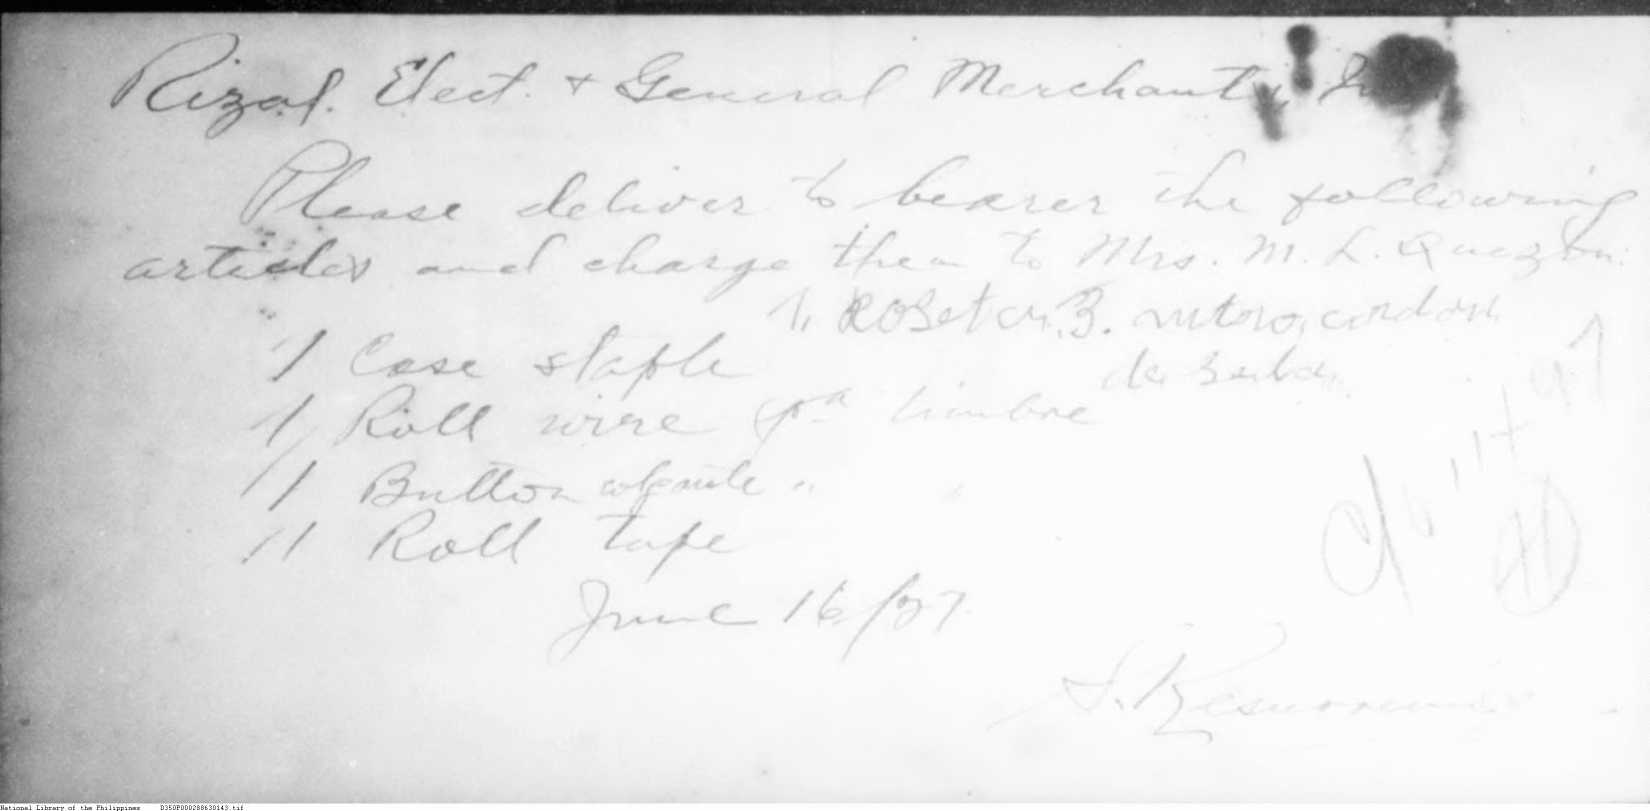 Rizal. Elect. + General Merchants, In
Please deliver to bearer the following
articles and charge them to Mrs. M. L. Quezon.
1 Roseton. 3. metro, cordon
de seda
1 Case staple
1 Roll wire pa timbre
1 Button colgante "
1 Roll tape
June 16/37
National Library of the Philippines D350P000288630143.tif